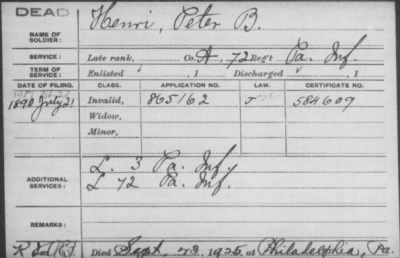 DEAD
Henri, Peter B.
NAME OF SOLDIER:
SERVICE: Late rank, Co. A, 72 Reg't Pa. Inf.
TERM OF SERVICE: Enlisted , 1 Discharged , 1
DATE OF FILING. CLASS. APPLICATION NO. LAW. CERTIFICATE NO.
1890 July 21 Invalid, 865162 J 584609
Widow,
Minor,
L. 3 Pa. Inf.
ADDITIONAL SERVICES: L 72 Pa. Inf.
REMARKS:
Died Sept. 1925, at Philadelphia, Pa.